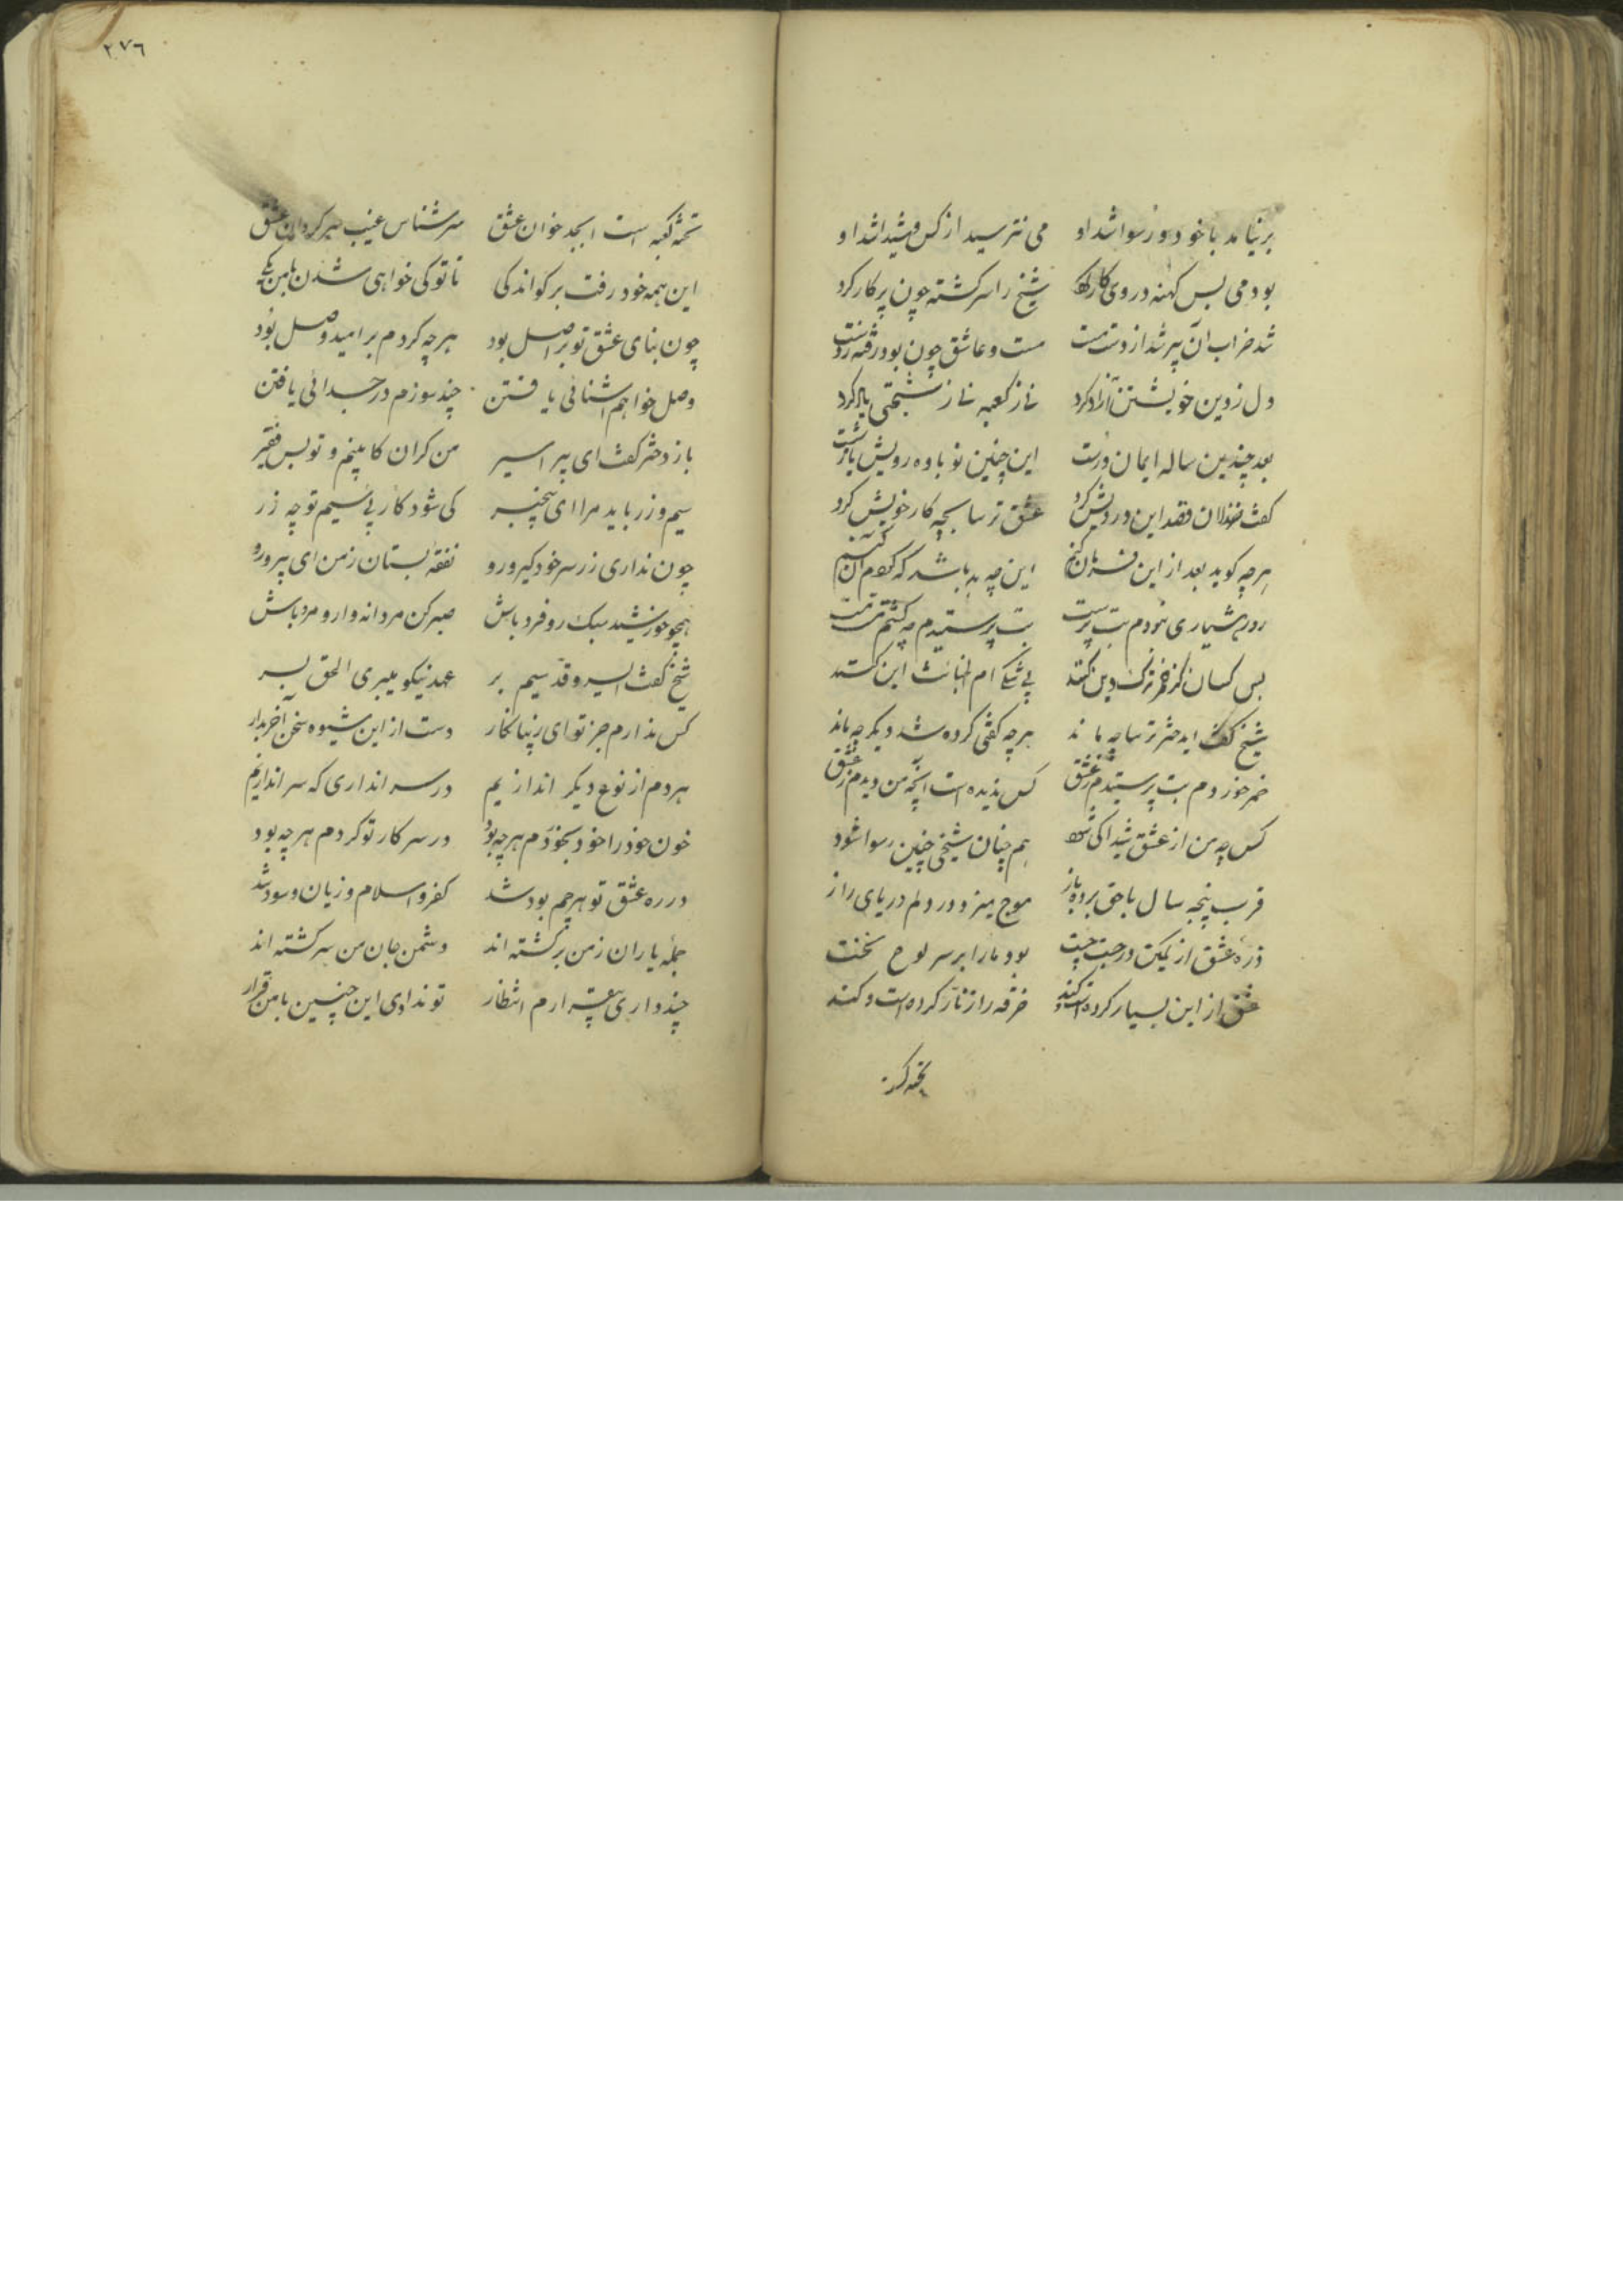 بر نیامد با خود و رسوا شد او می نترسید از کس و شیدا شد او
بود می بس کهنه در وی کار کرد شیخ را سرکشته چون پرکار کرد
شد خراب آن پیر شد از دست مست مست و عاشق چون بود رفته ز دست
دل ز دین خویشتن آزاد کرد نه ز کعبه نه ز شیخی یاد کرد
بعد چندین ساله ایمان درست این چنین نوباوه رویش باز شست
کفت خذلان قصد این درویش کرد عشق ترسا بچه کار خویش کرد
هرچه کوید بعد از این فرمان کنم این چه بد باشد که کردم آن کنم
روز هشیاری نبودم بت پرست بت پرستیدم چه کشتم مست مست
بس کسان کز خمر ترک دین کنند بی شکی ام الخبائث این کند
شیخ کفت ای دختر ترسا چه ماند هرچه کفتی کرده شد دیکر چه ماند
خمر خوردم بت پرستیدم ز عشق کس ندیده است آنچه من دیدم ز عشق
کس چه من از عشق شیدا کی شود هم چنان شیخی چنین رسوا شود
قرب پنجه سال با حق برده باز موج میزد در دلم دریای راز
ذره عشق از کمین درجست چست بود ما را بر سر لوح نخست
عشق از این بسیار کرده است و کند خرقه را زنار کرده است و کند
تخته کعبه
۲۷۶
تخته کعبه است ابجد خوان عشق سرشناس غیب سرکردان عشق
این همه خود رفت برکو اندکی تا تو کی خواهی شدن با من یکی
چون بنای عشق تو بر اصل بود هرچه کردم بر امید وصل بود
وصل خواهم اشنائی یافتن چند سوزم در جدائی یافتن
باز دختر کفت ای پیر اسیر من کران کابینم و تو بس فقیر
سیم و زر باید مرا ای بیخبر کی شود کار بی سیم تو چه زر
چون نداری زر سر خود کیر و رو نفقه بستان ز من ای پیر و رو
همچو خورشید سبک رو فرد باش صبر کن مردانه وار و مرد باش
شیخ کفت ای سرو قد سیم بر عهد نیکو میبری الحق بسر
کس ندارم جز تو ای زیبا نکار دست از این شیوه سخن آخر بدار
هردم از نوع دیکر اندازیم در سر اندازی که سر اندازیم
خون خود را خود بخوردم هرچه بود در سر کار تو کردم هر چه بود
در ره عشق تو هرچم بود شد کفر و اسلام و زیان و سود شد
جمله یاران ز من برکشته اند دشمن جان من سرکشته اند
چند داری بیقرارم انتظار تو ندادی این چنین با من قرار